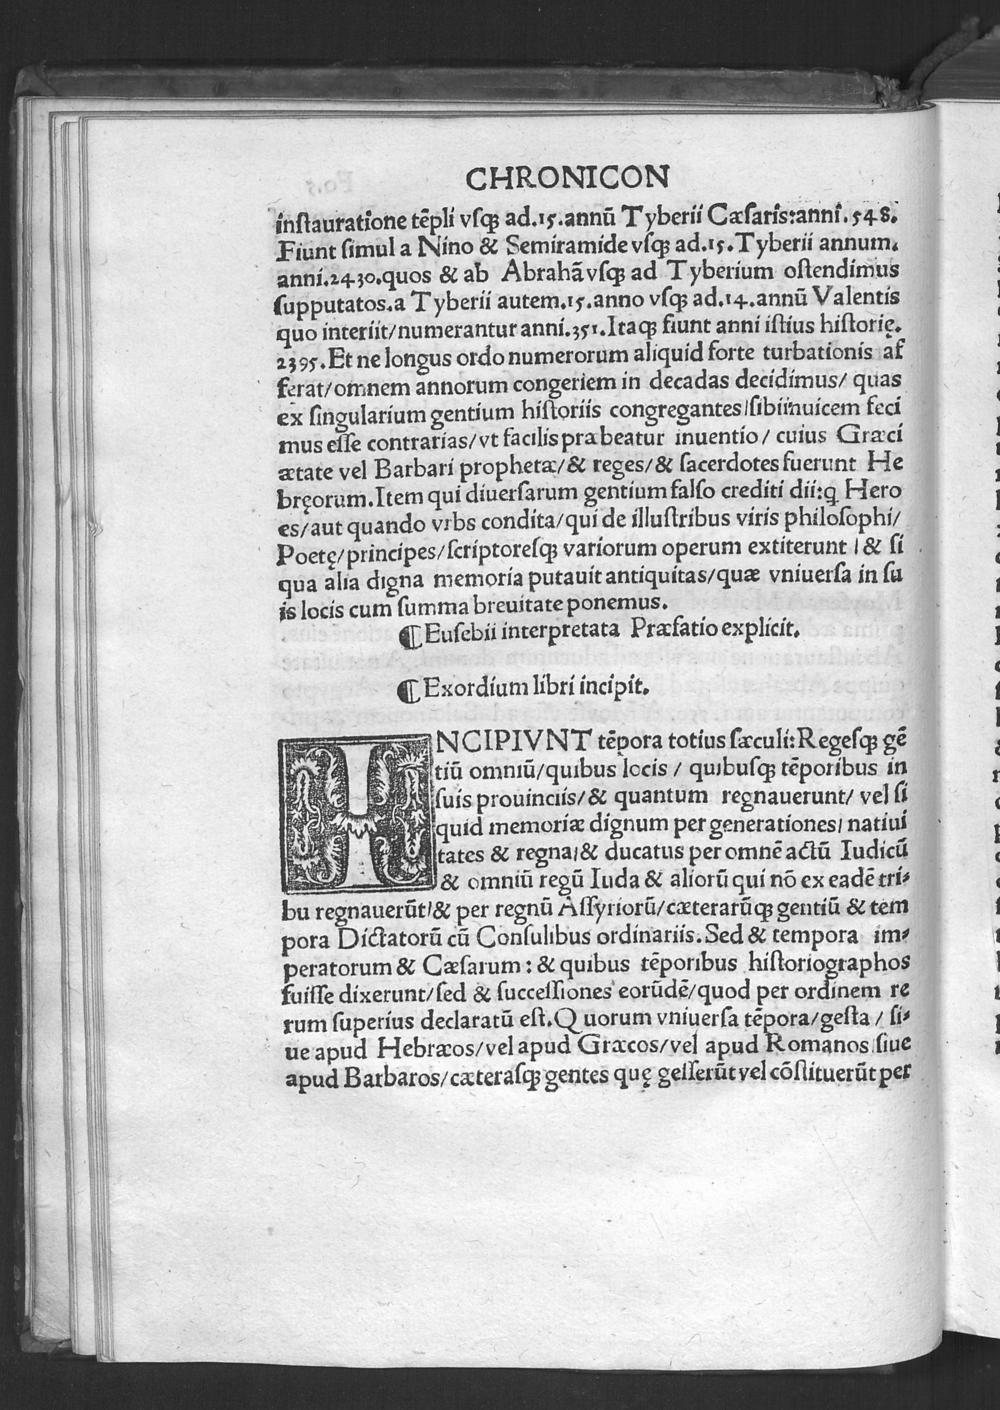 CHRONICON
instauratione tēpli vsq; ad.15.annū Tyberii Cæsaris:anni.548.
Fiunt simul a Nino & Semiramide vsq; ad.15.Tyberii annum.
anni.2430.quos & ab Abrahā vsq; ad Tyberium ostendimus
supputatos.a Tyberii autem.15.anno vsq; ad.14.annū Valentis
quo interiit/numerantur anni.351.Itaq; fiunt anni istius historię.
2395.Et ne longus ordo numerorum aliquid forte turbationis af
ferat/omnem annorum congeriem in decadas decidimus/ quas
ex singularium gentium historiis congregantes/sibiinuicem feci
mus esse contrarias/vt facilis præbeatur inuentio/ cuius Græci
ætate vel Barbari prophetæ/& reges/& sacerdotes fuerunt He
bręorum.Item qui diuersarum gentium falso crediti dii:q̨ Hero
es/aut quando vrbs condita/qui de illustribus viris philosophi/
Poetę/principes/scriptoresq; variorum operum extiterunt/& si
qua alia digna memoria putauit antiquitas/quæ vniuersa in su
is locis cum summa breuitate ponemus.
¶Eusebii interpretata Præfatio explicit.
¶Exordium libri incipit.
INCIPIVNT tēpora totius sæculi:Regesq; gē
tiū omniū/quibus locis / quibusq; tēporibus in
suis prouinciis/& quantum regnauerunt/ vel si
quid memoriæ dignum per generationes/ natiui
tates & regna/& ducatus per omnē actū Iudicū
& omniū regū Iuda & aliorū qui nō ex eadē tri-
bu regnauerūt/& per regnū Assyriorū/cæterarūq; gentiū & tem
pora Dictatorū cū Consulibus ordinariis.Sed & tempora im-
peratorum & Cæsarum : & quibus tēporibus historiographos
fuisse dixerunt/sed & successiones eorūdē/quod per ordinem re
rum superius declaratū est.Quorum vniuersa tēpora/gesta / si-
ue apud Hebræos/vel apud Græcos/vel apud Romanos/siue
apud Barbaros/cæterasq; gentes quę gesserūt vel cōstituerūt per